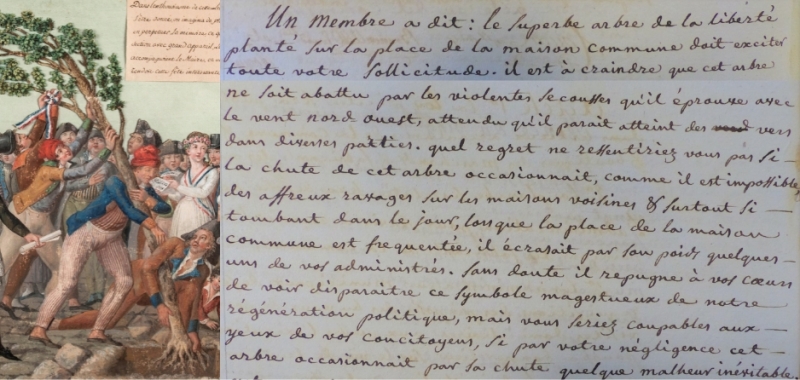 Dans l'enthousiasme de cette
Un membre a dit : le superbe arbre de la liberté
planté sur la place de la maison commune doit exciter
toute votre sollicitude. il est à craindre que cet arbre
ne soit abattu par les violentes secousses qu'il éprouve avec
le vent nord ouest, attendu qu'il parait atteint des vers
dans diverses parties. quel regret ne ressentiriez vous pas si —
la chute de cet arbre occasionnait, comme il est impossible,
des affreux ravages sur les maisons voisines & surtout si —
tombant dans le jour, lorsque la place de la maison
commune est frequentée, il écrasait par son poids quelques —
uns de vos administrés. sans doute il repugne à vos cœurs
de voir disparaitre ce symbole magestueux de notre
régénération politique, mais vous seriez coupables aux —
yeux de vos concitoyens, si par votre négligence cet —
arbre occasionnait par sa chute quelque malheur inévitable.